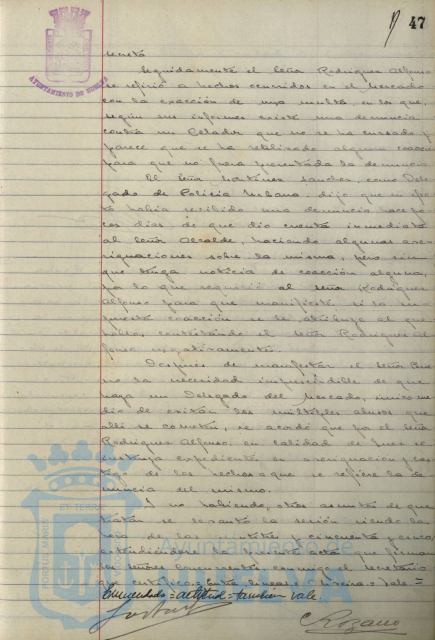 47
AYUNTAMIENTO DE HUELVA
creto
Seguidamente el Señor Rodriguez Alfonso
se refirió a hechos ocurridos en el Mercado
con la exacción de una multa, en los que,
según sus informes existe una denuncia
contra un Celador que no se ha cursado y
parece que se ha utilizado alguna coacción
para que no fuera presentada la denuncia
El Señor Martinez Sanchez, como Dele-
gado de Policia Urbana, dijo que
habia recibido una denuncia hace po-
cos dias, de que dio cuenta inmediata
al Señor Alcalde, haciendo algunas ave-
riguaciones sobre la misma, pero sin
que tenga noticia de coacción alguna,
por lo que requirió al Señor Rodriguez
Alfonso para que manifieste si la su-
puesta coacción se la atribuye al que
habla, contestando el Señor Rodriguez Al-
fonso negativamente.
Despues de manifestar el Señor
la necesidad imprescindible de que
haya un Delegado del Mercado, unico me-
dio de evitar los multiples abusos que
alli se cometen, se acordó que por el Señor
Rodriguez Alfonso, en calidad de Juez se
instruya expediente en averiguación y cas-
tigo de los hechos a que se refiere la de-
nuncia del mismo.
Y no habiendo otros asuntos de que
tratar se levantó la sesión siendo la
hora de las veintitres cincuenta y cinco,
extendiendose la presente acta que firman
los señores Concurrentes, conmigo el Secretario
que certifico = Entre lineas = = vale =
Enmendado = actitud = tambien vale.
Ayuntamiento de